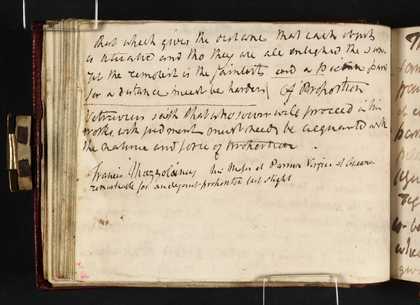 that which gives the distance that each object
is situated and tho they are all enlighted the same
yet the remotest is the faintest and a Picture
for a distance must be harder Of Proportion
Vitruvius saith that who soever will proceed in his
works with judgment must needs be acquainted with
the nature and force of Proportion
Francis Mazzolinus his Mast at Parma Virgin at
remarkable for an elegant proportion but slight